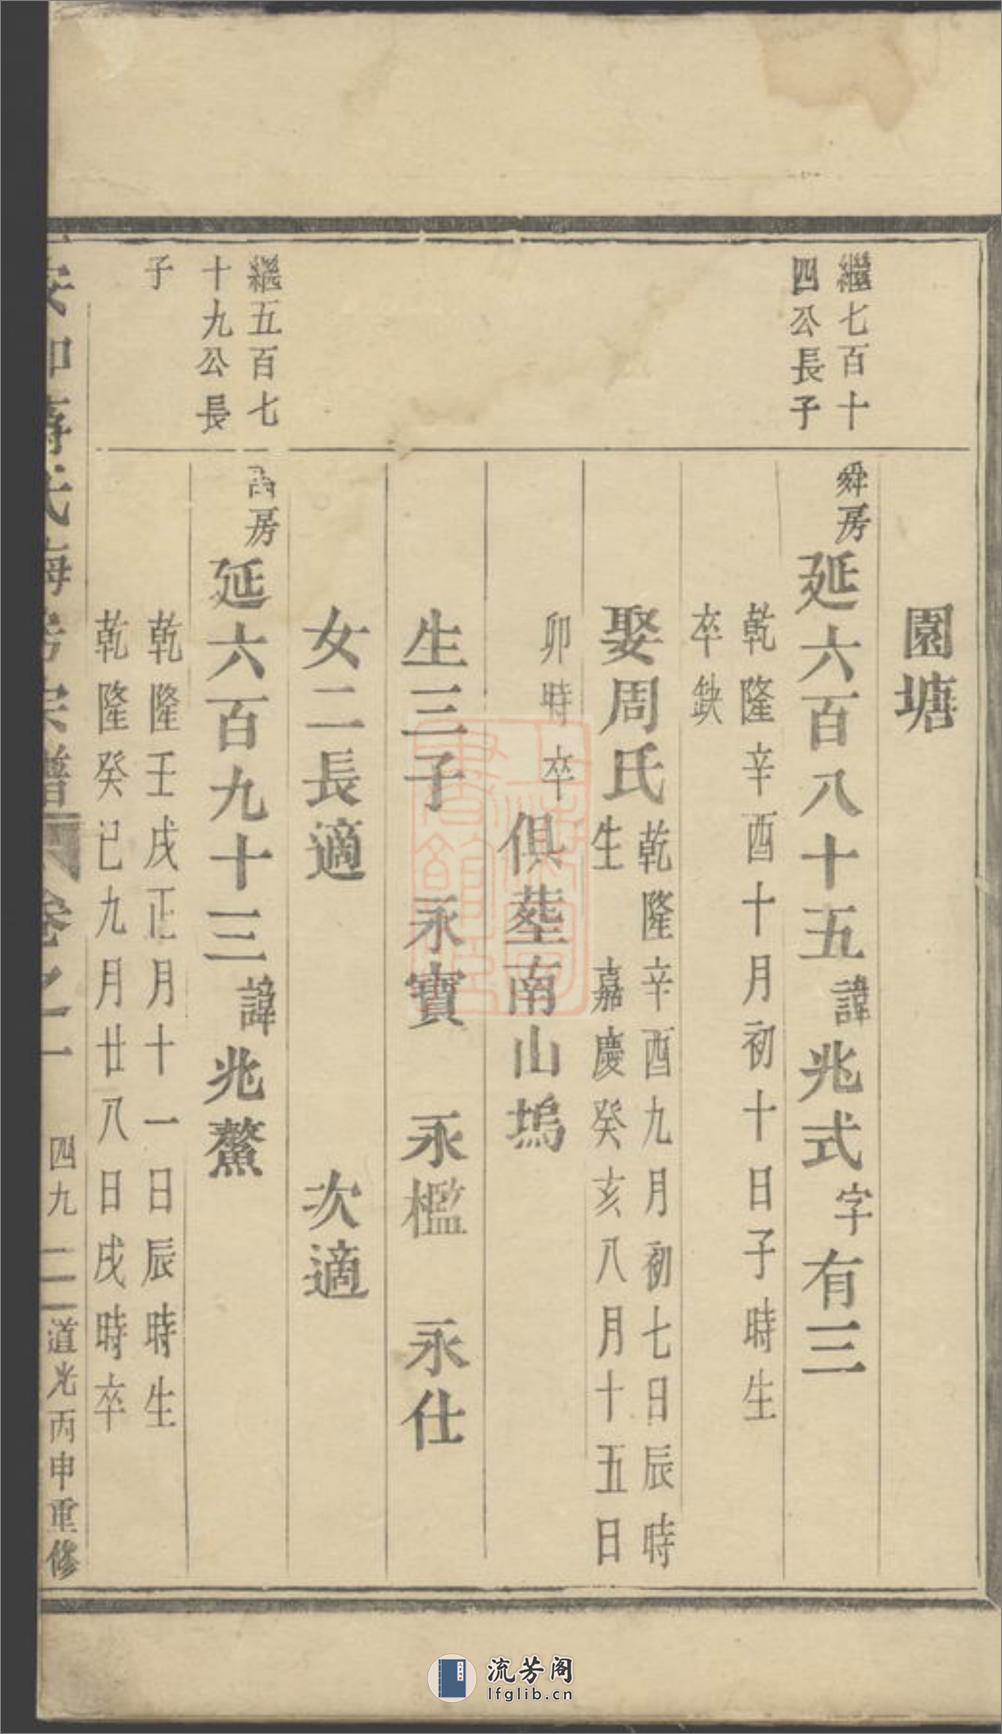 園塘
繼七百十
四公長子
舜房 延六百八十五 諱 兆式 字 有三
乾隆辛酉十月初十日子時生
卒缺
娶周氏 乾隆辛酉九月初七日辰時
生 嘉慶癸亥八月十五日
卯時卒
俱塟南山塢
生三子 永寶 永檻 永仕
女二長適 次適
繼五百七
十九公長
子
房 延六百九十三 諱 兆鰲
乾隆壬戌正月十一日辰時生
乾隆癸巳九月廿八日戌時卒
氏 房宗譜 卷之一 四九 道光丙申重修
流芳阁
lfglib.cn